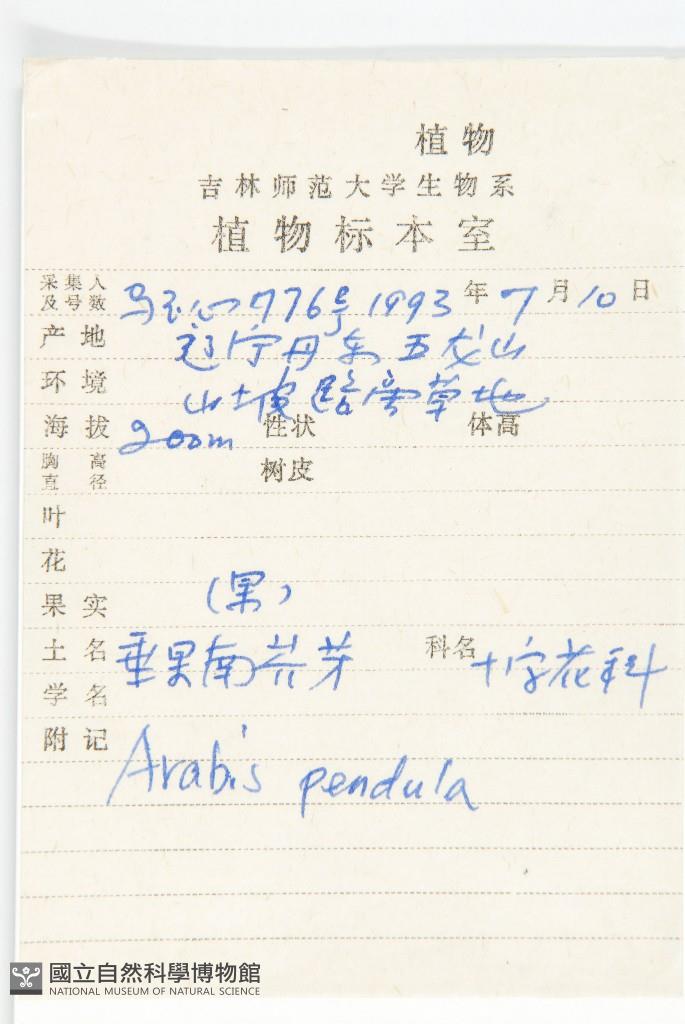 植物
吉林师范大学生物系
植物标本室
采集人及号数 776号 1993年7月10日
产地 辽宁丹东五龙山
环境 山坡路旁草地
海拔 200m 性状 体高
胸高直径 树皮
叶
花
果实 (果)
土名 垂果南芥 科名 十字花科
学名
附记 Arabis pendula
國立自然科學博物館
NATIONAL MUSEUM OF NATURAL SCIENCE